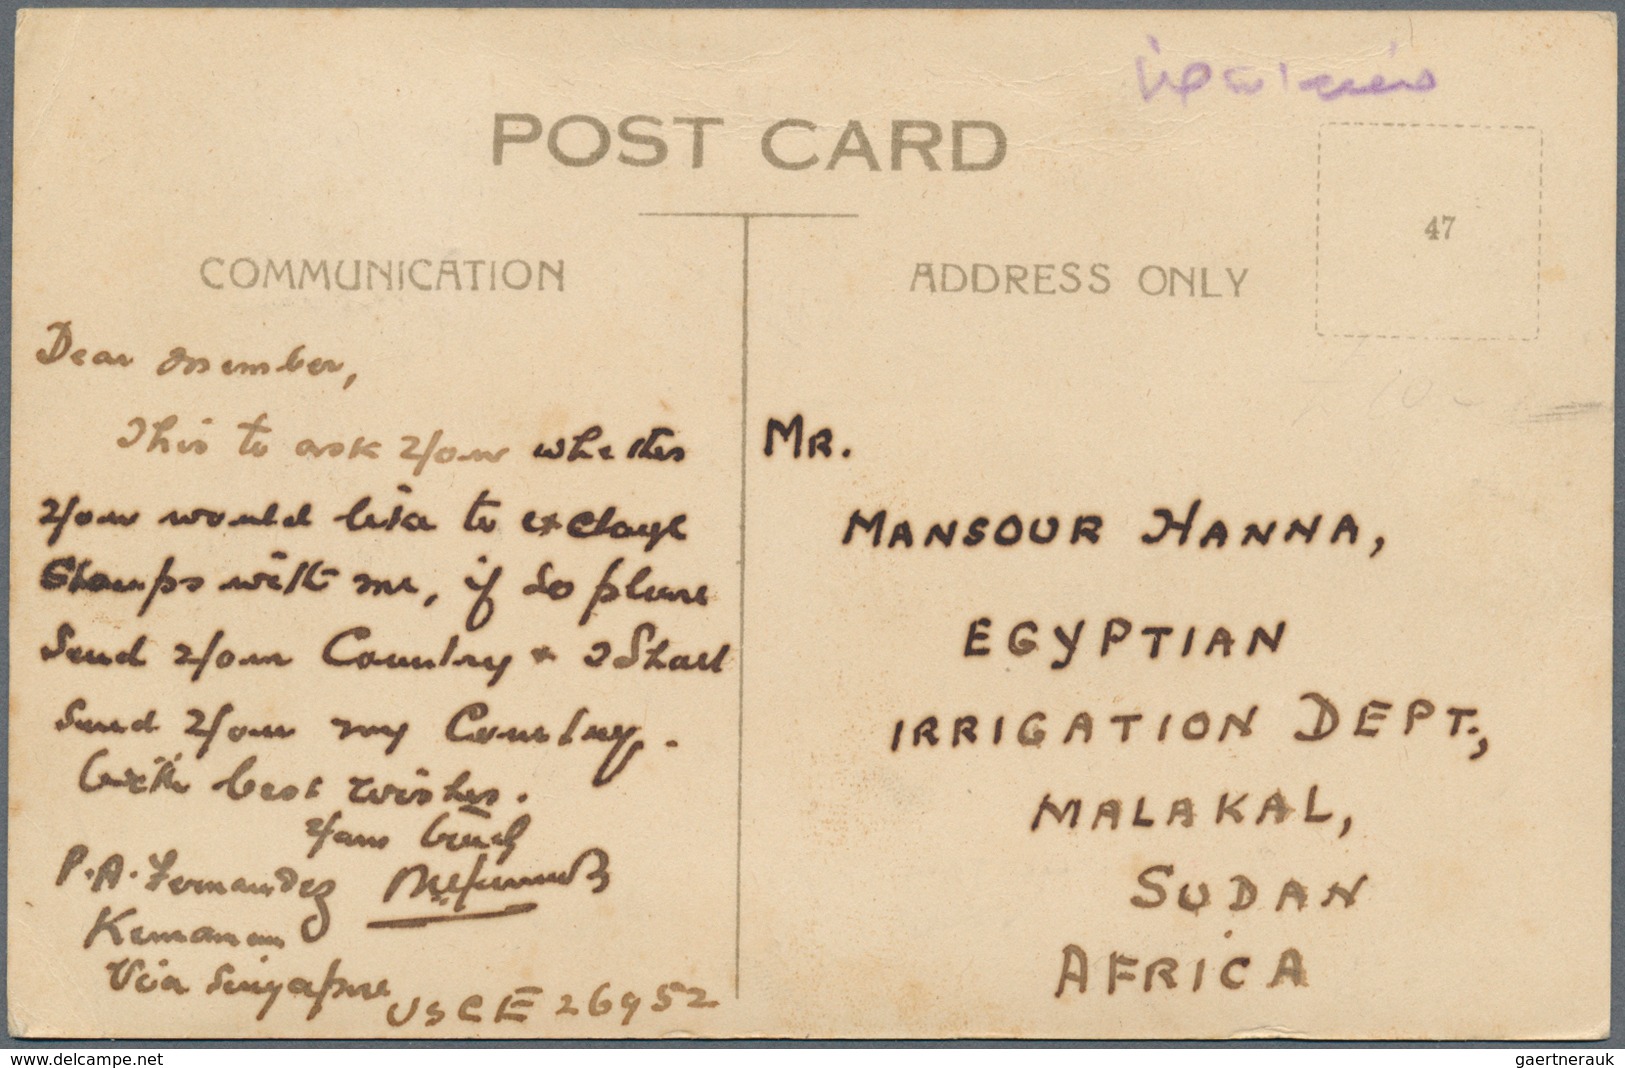 POST CARD
47
COMMUNICATION
Dear member,
This to ask your whether
your would like to exchange
Stamps with me, if so please
Send your Country & I Shall
Send your my Country.
With best wishes.
P.A. Fernandez
Kemaman
Via Singapore
USCE 26952
ADDRESS ONLY
MR.
MANSOUR HANNA,
EGYPTIAN
IRRIGATION DEPT.,
MALAKAL,
SUDAN
AFRICA
www.delcampe.net
gaertnerauk